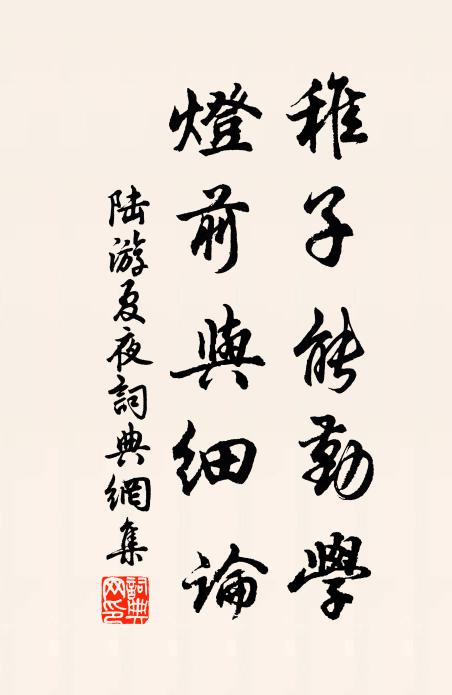 稚子能勤學
燈前與細論
陸游夏夜詞典網集
詞典
网印